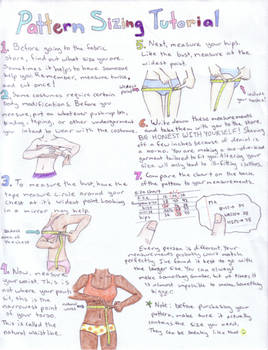 Pattern Sizing Tutorial
1. Before going to the fabric
store, find out what size you are.
Sometimes it helps to have someone
help you. Remember, measure twice,
and cut once!
2. Some costumes require certain
body modifications. Before you
measure, put on whatever push-up bra,
you intend to wear with the costume.
3. To measure the bust, have the
tape measure rule around your
chest at its widest point. Looking
in a mirror may help.
4. Now, measure
your waist. This is
not where your pants
sit, this is the
narrowest point
of your torso.
This is called the
natural waistline.
natural waist
5. Next, measure your hips.
Like the bust, measure at the
widest point.
widest point
6. Write down these measurements
and take them with you to the store.
BE HONEST WITH YOURSELF! Shaving
off a few inches because of denial is
a no-no. You are making a one-of-a-kind
garment tailored to fit you. Altering your
size will only lead to ill-fitting clothes.
7. Compare the chart on the back
of the pattern to your measurements.
Every person is different. Your
measurements probably won't match
perfectly. I've found it best to go with
the larger size. You can always
make something smaller, but at times it
is almost impossible to make something
bigger.
* Note: before purchasing your
pattern, make sure it actually
contains the size you need.
They can be sneaky like that